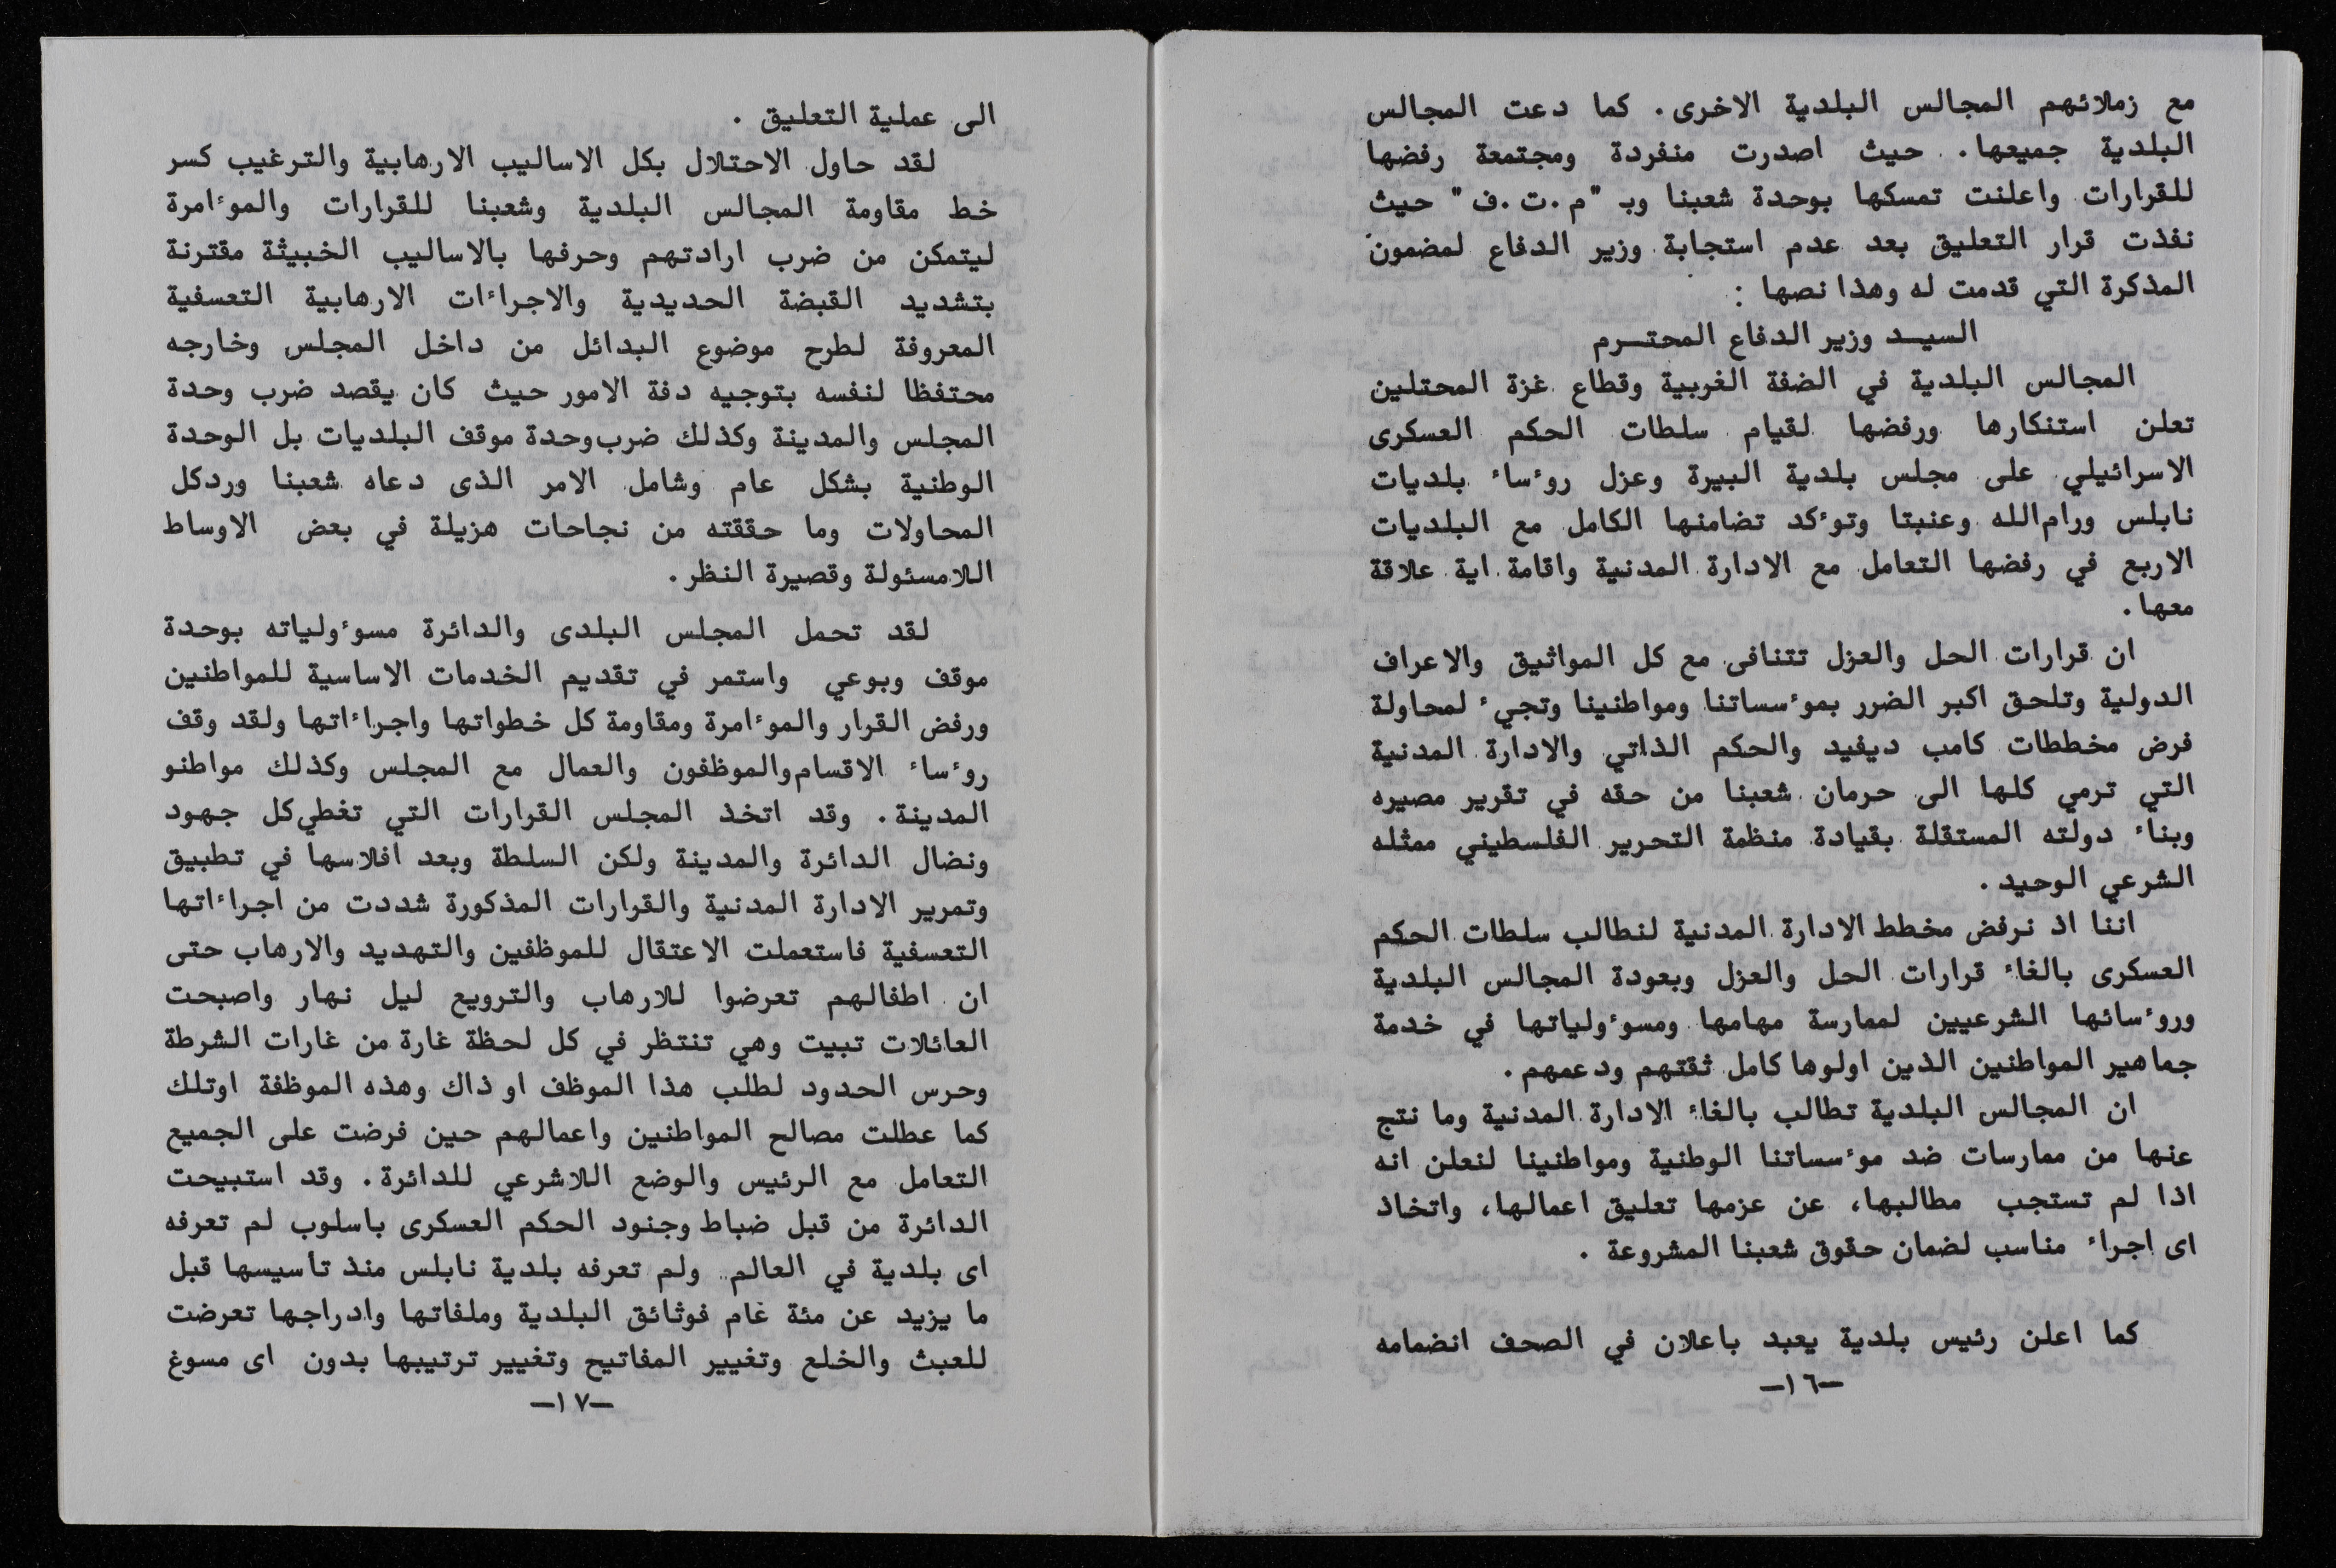 مع زملائهم المجالس البلدية الاخرى. كما دعت المجالس
البلدية جميعها. حيث اصدرت منفردة ومجتمعة رفضها
للقرارات واعلنت تمسكها بوحدة شعبنا وبـ "م.ت.ف" حيث
نفذت قرار التعليق بعد عدم استجابة وزير الدفاع لمضمون
المذكرة التي قدمت له وهذا نصها :
السيــد وزير الدفاع المحتــرم
المجالس البلدية في الضفة الغربية وقطاع غزة المحتلين
تعلن استنكارها ورفضها لقيام سلطات الحكم العسكرى
الاسرائيلي على مجلس بلدية البيرة وعزل روءساء بلديات
نابلس ورام الله وعنبتا وتوءكد تضامنها الكامل مع البلديات
الاربع في رفضها التعامل مع الادارة المدنية واقامة اية علاقة
معها.
ان قرارات الحل والعزل تتنافى مع كل المواثيق والاعراف
الدولية وتلحق اكبر الضرر بموءسساتنا ومواطنينا وتجيء لمحاولة
فرض مخططات كامب ديفيد والحكم الذاتي والادارة المدنية
التي ترمي كلها الى حرمان شعبنا من حقه في تقرير مصيره
وبناء دولته المستقلة بقيادة منظمة التحرير الفلسطيني ممثله
الشرعي الوحيد .
اننا اذ نرفض مخطط الادارة المدنية لنطالب سلطات الحكم
العسكرى بالغاء قرارات الحل والعزل وبعودة المجالس البلدية
وروءسائها الشرعيين لممارسة مهامها ومسوءولياتها في خدمة
جماهير المواطنين الذين اولوها كامل ثقتهم ودعمهم .
ان المجالس البلدية تطالب بالغاء الادارة المدنية وما نتج
عنها من ممارسات ضد موءسساتنا الوطنية ومواطنينا لنعلن انه
اذا لم تستجب مطالبها، عن عزمها تعليق اعمالها، واتخاذ
اى اجراء مناسب لضمان حقوق شعبنا المشروعة .
كما اعلن رئيس بلدية يعبد باعلان في الصحف انضمامه
—١٦—
الى عملية التعليق .
لقد حاول الاحتلال بكل الاساليب الارهابية والترغيب كسر
خط مقاومة المجالس البلدية وشعبنا للقرارات والموءامرة
ليتمكن من ضرب ارادتهم وحرفها بالاساليب الخبيثة مقترنة
بتشديد القبضة الحديدية والاجراءات الارهابية التعسفية
المعروفة لطرح موضوع البدائل من داخل المجلس وخارجه
محتفظا لنفسه بتوجيه دفة الامور حيث كان يقصد ضرب وحدة
المجلس والمدينة وكذلك ضرب وحدة موقف البلديات بل الوحدة
الوطنية بشكل عام وشامل الامر الذى دعاه شعبنا وردكل
المحاولات وما حققته من نجاحات هزيلة في بعض الاوساط
اللامسئولة وقصيرة النظر.
لقد تحمل المجلس البلدى والدائرة مسوءولياته بوحدة
موقف وبوعي واستمر في تقديم الخدمات الاساسية للمواطنين
ورفض القرار والموءامرة ومقاومة كل خطواتها واجراءاتها ولقد وقف
روءساء الاقسام والموظفون والعمال مع المجلس وكذلك مواطنو
المدينة. وقد اتخذ المجلس القرارات التي تغطي كل جهود
ونضال الدائرة والمدينة ولكن السلطة وبعد افلاسها في تطبيق
وتمرير الادارة المدنية والقرارات المذكورة شددت من اجراءاتها
التعسفية فاستعملت الاعتقال للموظفين والتهديد والارهاب حتى
ان اطفالهم تعرضوا للارهاب والترويع ليل نهار واصبحت
العائلات تبيت وهي تنتظر في كل لحظة غارة من غارات الشرطة
وحرس الحدود لطلب هذا الموظف او ذاك وهذه الموظفة اوتلك
كما عطلت مصالح المواطنين واعمالهم حين فرضت على الجميع
التعامل مع الرئيس والوضع اللاشرعي للدائرة. وقد استبيحت
الدائرة من قبل ضباط وجنود الحكم العسكرى باسلوب لم تعرفه
اى بلدية في العالم. ولم تعرفه بلدية نابلس منذ تأسيسها قبل
ما يزيد عن مئة عام فوثائق البلدية وملفاتها وادراجها تعرضت
للعبث والخلع وتغيير المفاتيح وتغيير ترتيبها بدون اى مسوغ
—١٧—